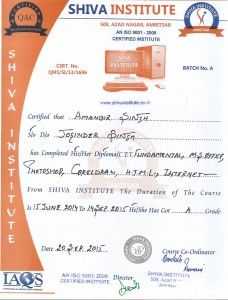 SHIVA INSTITUTE
508, AZAD NAGAR, AMRITSAR
AN ISO 9001 - 2008
CERTIFIED INSTITUTE
QAC
CERT. No.
QMS/SI/13/1696
BATCH No. A
www.shivainstitute.co.in
SHIVA INSTITUTE
Certified that Amandir Singh
s/o D/o Joginder Singh
has Completed His/Her Diploma C.T.T. Fundamental, M.S. Office,
Photoshop, CorelDraw, H.T.M.L, Internet
From SHIVA INSTITUTE The Duration of The Course
is 15 June 2014 To 14 Sep. 2015 He/She Has Got A Grade
Date 20 Sep. 2015
Course Co-Ordinator
IAQS
AN ISO 9001-2008
CERTIFIED INSTITUTE
Director
SHIVA INSTITUTE
508, Azad Nagar
Amritsar